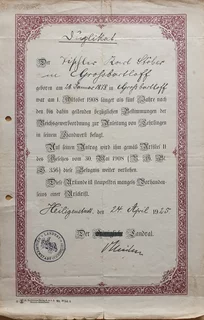 Duplikat.
Der Tischler Karl Stöber
in Großbartloff
geboren am 28. Januar 1878 in Großbartloff
war am 1. Oktober 1908 länger als fünf Jahre nach
den bis dahin geltenden bezüglichen Bestimmungen der
Reichsgewerbeordnung zur Anleitung von Lehrlingen
in seinem Handwerk befugt.
Auf seinen Antrag wird ihm gemäß Artikel II
des Gesetzes vom 30. Mai 1908 (R. G. Bl.
S. 356) diese Befugnis weiter verliehen.
Diese Urkunde ist stempelfrei mangels Vorhandenseins
einer Tarifstelle.
Heiligenstadt, den 24. April 1925
Der Landrat.